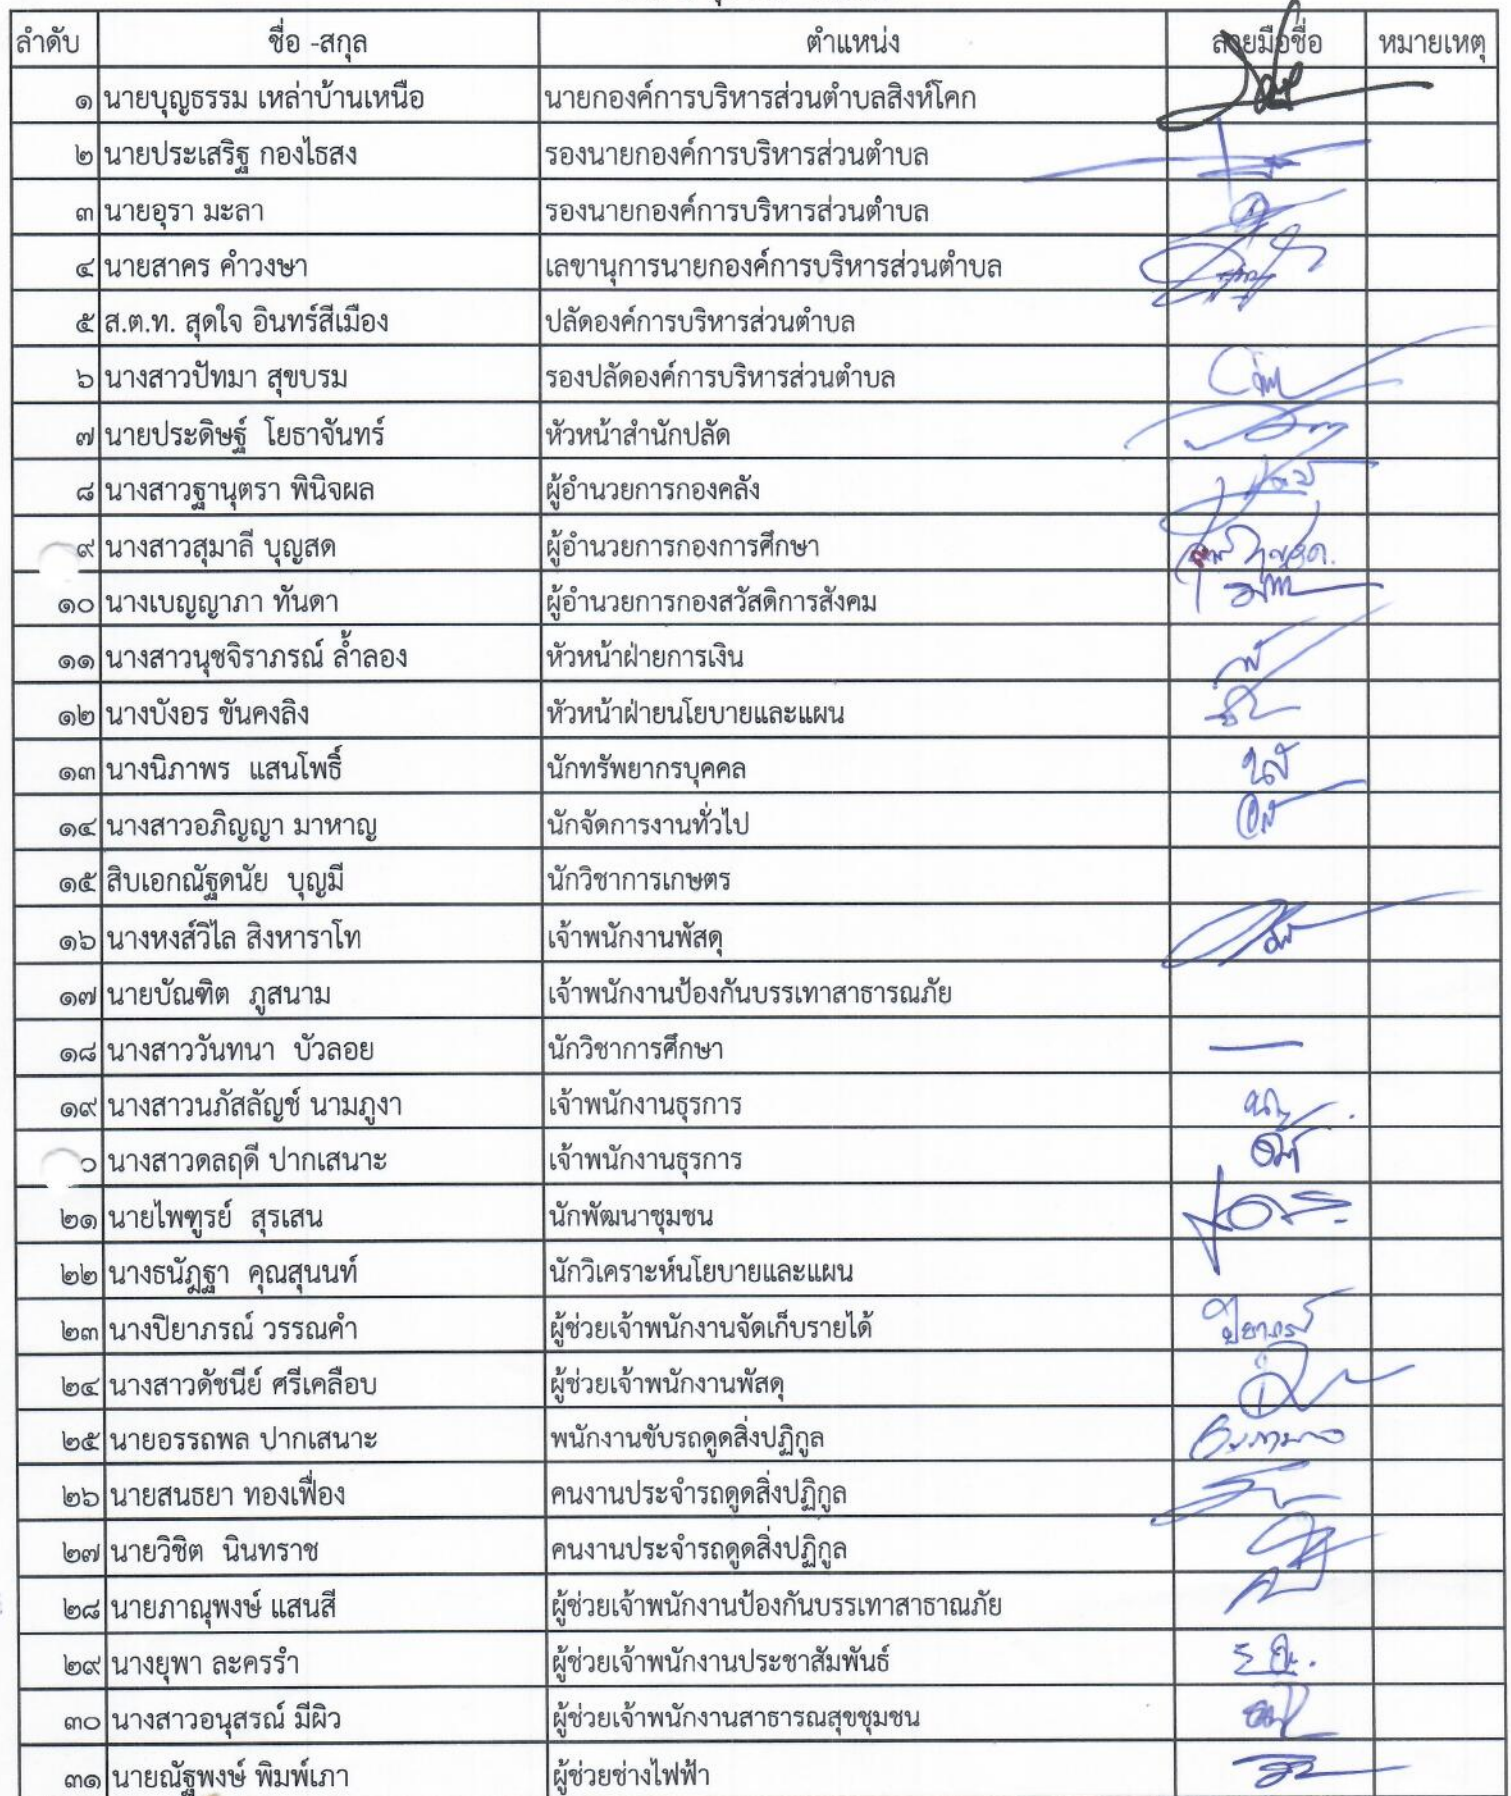 ลำดับ ชื่อ -สกุล ตำแหน่ง ลายมือชื่อ หมายเหตุ
๑ นายบุญธรรม เหล่าบ้านเหนือ นายกองค์การบริหารส่วนตำบลสิงห์โคก
๒ นายประเสริฐ กองไธสง รองนายกองค์การบริหารส่วนตำบล
๓ นายอุรา มะลา รองนายกองค์การบริหารส่วนตำบล
๔ นายสาคร คำวงษา เลขานุการนายกองค์การบริหารส่วนตำบล
๕ ส.ต.ท. สุดใจ อินทร์สีเมือง ปลัดองค์การบริหารส่วนตำบล
๖ นางสาวปัทมา สุขบรม รองปลัดองค์การบริหารส่วนตำบล
๗ นายประดิษฐ์ โยธาจันทร์ หัวหน้าสำนักปลัด
๘ นางสาวฐานุตรา พินิจผล ผู้อำนวยการกองคลัง
๙ นางสาวสุมาลี บุญสด ผู้อำนวยการกองการศึกษา
๑๐ นางเบญญาภา ทันดา ผู้อำนวยการกองสวัสดิการสังคม
๑๑ นางสาวนุชจิราภรณ์ ล้ำลอง หัวหน้าฝ่ายการเงิน
๑๒ นางบังอร ขันคงลิง หัวหน้าฝ่ายนโยบายและแผน
๑๓ นางนิภาพร แสนโพธิ์ นักทรัพยากรบุคคล
๑๔ นางสาวอภิญญา มาหาญ นักจัดการงานทั่วไป
๑๕ สิบเอกณัฐดนัย บุญมี นักวิชาการเกษตร
๑๖ นางหงส์วิไล สิงหาราโท เจ้าพนักงานพัสดุ
๑๗ นายบัณฑิต ภูสนาม เจ้าพนักงานป้องกันบรรเทาสาธารณภัย
๑๘ นางสาววันทนา บัวลอย นักวิชาการศึกษา
๑๙ นางสาวนภัสลัญช์ นามภูงา เจ้าพนักงานธุรการ
๐ นางสาวดลฤดี ปากเสนาะ เจ้าพนักงานธุรการ
๒๑ นายไพฑูรย์ สุรเสน นักพัฒนาชุมชน
๒๒ นางธนัฎฐา คุณสุนนท์ นักวิเคราะห์นโยบายและแผน
๒๓ นางปิยาภรณ์ วรรณคำ ผู้ช่วยเจ้าพนักงานจัดเก็บรายได้ ปิยาภรณ์
๒๔ นางสาวดัชนีย์ ศรีเคลือบ ผู้ช่วยเจ้าพนักงานพัสดุ
๒๕ นายอรรถพล ปากเสนาะ พนักงานขับรถดูดสิ่งปฏิกูล
๒๖ นายสนธยา ทองเฟื่อง คนงานประจำรถดูดสิ่งปฏิกูล
๒๗ นายวิชิต นินทราช คนงานประจำรถดูดสิ่งปฏิกูล
๒๘ นายภาณุพงษ์ แสนสี ผู้ช่วยเจ้าพนักงานป้องกันบรรเทาสาธาณภัย
๒๙ นางยุพา ละครรำ ผู้ช่วยเจ้าพนักงานประชาสัมพันธ์
๓๐ นางสาวอนุสรณ์ มีผิว ผู้ช่วยเจ้าพนักงานสาธารณสุขชุมชน
๓๑ นายณัฐพงษ์ พิมพ์เภา ผู้ช่วยช่างไฟฟ้า